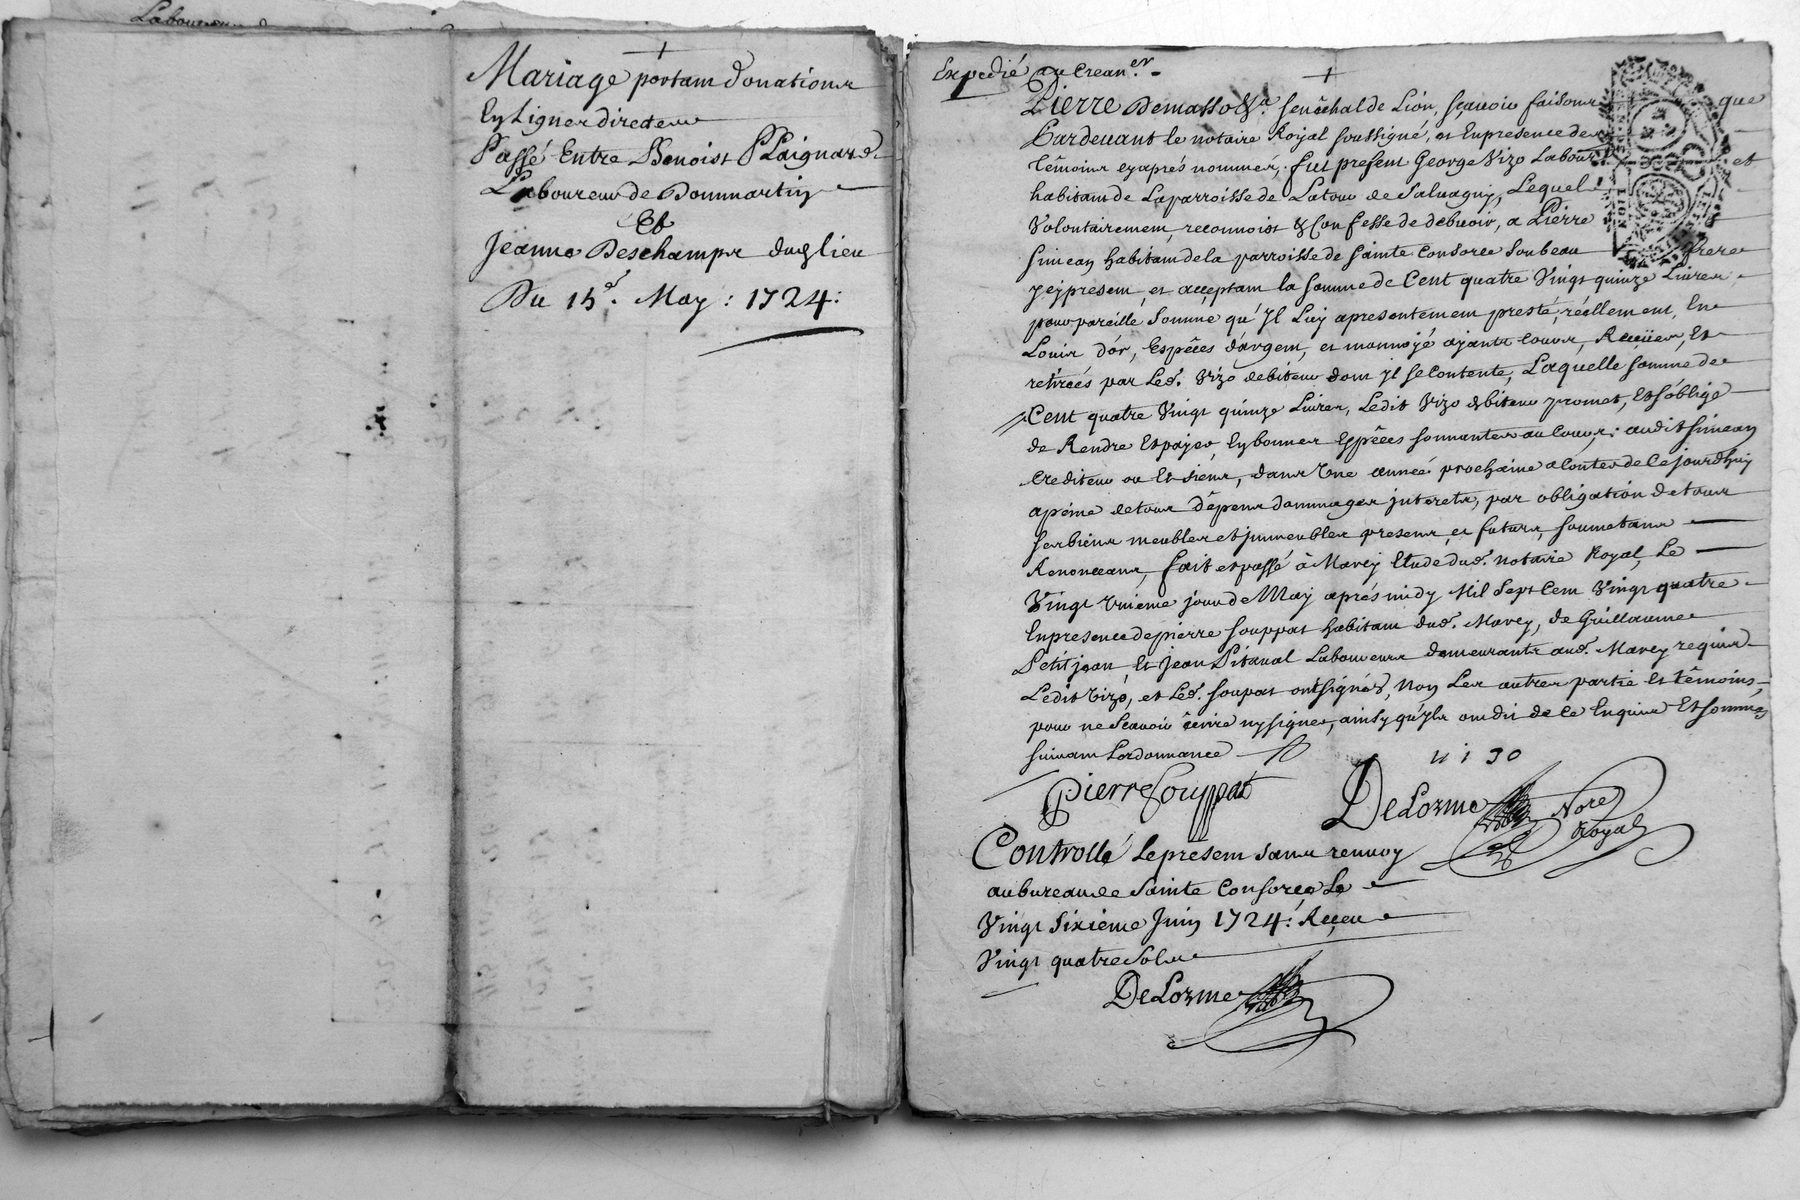 Laboureur de
+
Mariage portant donationz
En Ligne directe
Passé Entre Benoist Plaignard
Laboureur de Dommartin
Et
Jeanne Deschamps dud lieu
Du 15e. May : 1724 :
Expedié au Crean.er
+
Pierre Demasso &a. senéchal de Lion, sçavoir faisons que
Pardevant le notaire Royal soussigné, et En presence des
témoins cyaprés nommés, fut present George Vizo Labour et
habitant de La parroisse de Latour de Salvagny, Lequel
Volontairement, reconnoist & Confesse debvoir, a Pierre
Simean habitant de la parroisse de Sainte Consorce frere
y cy present, et acceptant la somme de Cent quatre Vingt quinze Livres
pour pareille somme qu'Il Luy a presentement presté, réellement, En
Louis d'or, Espêces d'argent, et monnoyé ayants cours, Reçües, Et
retirées par Led. Vizo debiteur dont Il se Contente, Laquelle somme de
Cent quatre Vingt quinze Livres, Ledit Vizo debiteur promet, Et s'oblige
de Rendre Et payer, En bonnes Espêces sonnantes au Cours, audit simean
Crediteur ou Et siens, dans Une année prochaine a Conter de Ce jourdhuy
a péine de tous dêpens dommages interets, par obligation de tous
ses biens meubles et immeubles presens et futurs, soumetans
Renonceans, fait et passé à Marcy Etude dud. notaire Royal, Le
Vingt Unieme jour de May aprés midy Mil Sept Cent Vingt quatre
En presence de pierre Souppat habitant dud. Marcy, de Guillaume
Petitjean, Et jean Pitaval Laboureurs demeurants aud. Marcy requis
Ledit Vizo, et Led. soupat ont signés, Non Les autres partie Et têmoins,
pour ne Scavoir êcrire ny signer, ainsy qu'yls ont dit de Ce Enquis Et sommés
suivant Lordonnance
Pierre Souppat
DeLorme Nore
Royal
Controllé Le present sans renvoy
au bureau de Sainte Consorce Le
Vingt Sixiême Juin 1724 : Reçeu
Vingt quatre Sols
DeLorme